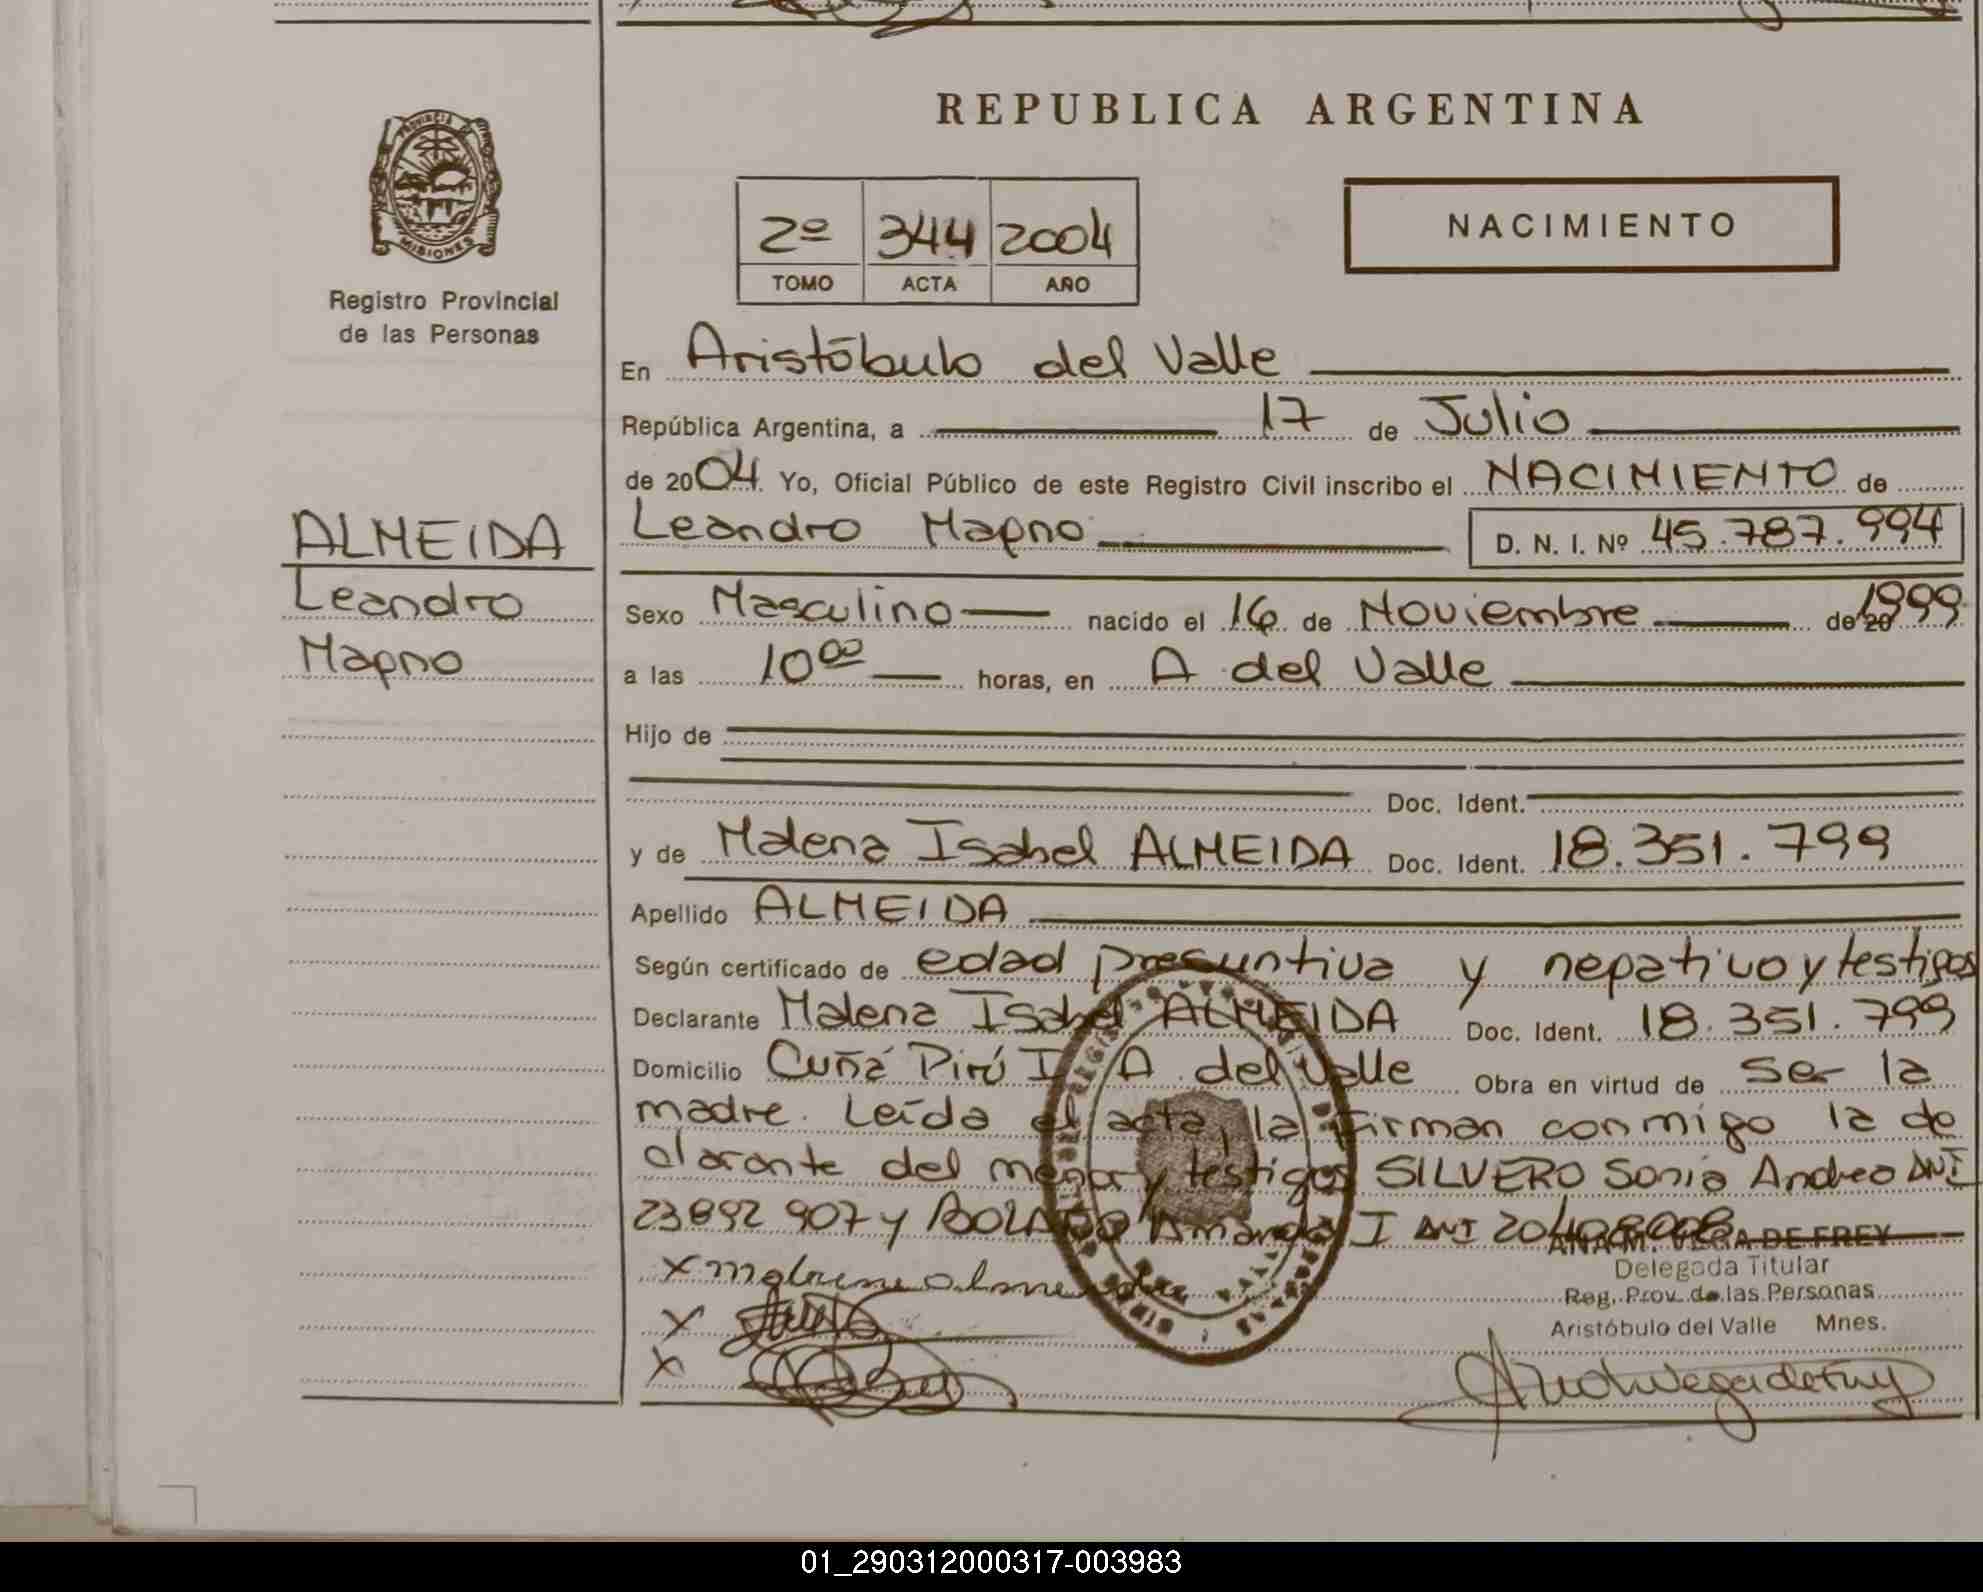 REPUBLICA ARGENTINA
PROVINCIA DE
MISIONES
Registro Provincial
de las Personas
2º 344 2004
TOMO ACTA AÑO
NACIMIENTO
En Aristóbulo del Valle
República Argentina, a 17 de Julio
de 2004. Yo, Oficial Público de este Registro Civil inscribo el NACIMIENTO de
Leandro Magno D. N. I. Nº 45.787.994
ALMEIDA
Leandro
Magno
Sexo Masculino nacido el 16 de Noviembre de 20 1999
a las 10⁰⁰ horas, en A del Valle
Hijo de
Doc. Ident.
y de Malena Isabel ALMEIDA Doc. Ident. 18.351.799
Apellido ALMEIDA
Según certificado de edad presuntiva y negativo y testigos
Declarante Malena Isabel ALMEIDA Doc. Ident. 18.351.799
Domicilio Cuñá Pirú I A del Valle Obra en virtud de ser la
madre. Leída el acta, la firman conmigo la de
clarante del menor y testigos SILVERO Sonia Andrea DNI
23892907 y Amanda I DNI
ANA M. VEGA DE FREY
Delegada Titular
Reg. Prov. de las Personas
Aristóbulo del Valle Mnes.
X
X
X
01_290312000317-003983